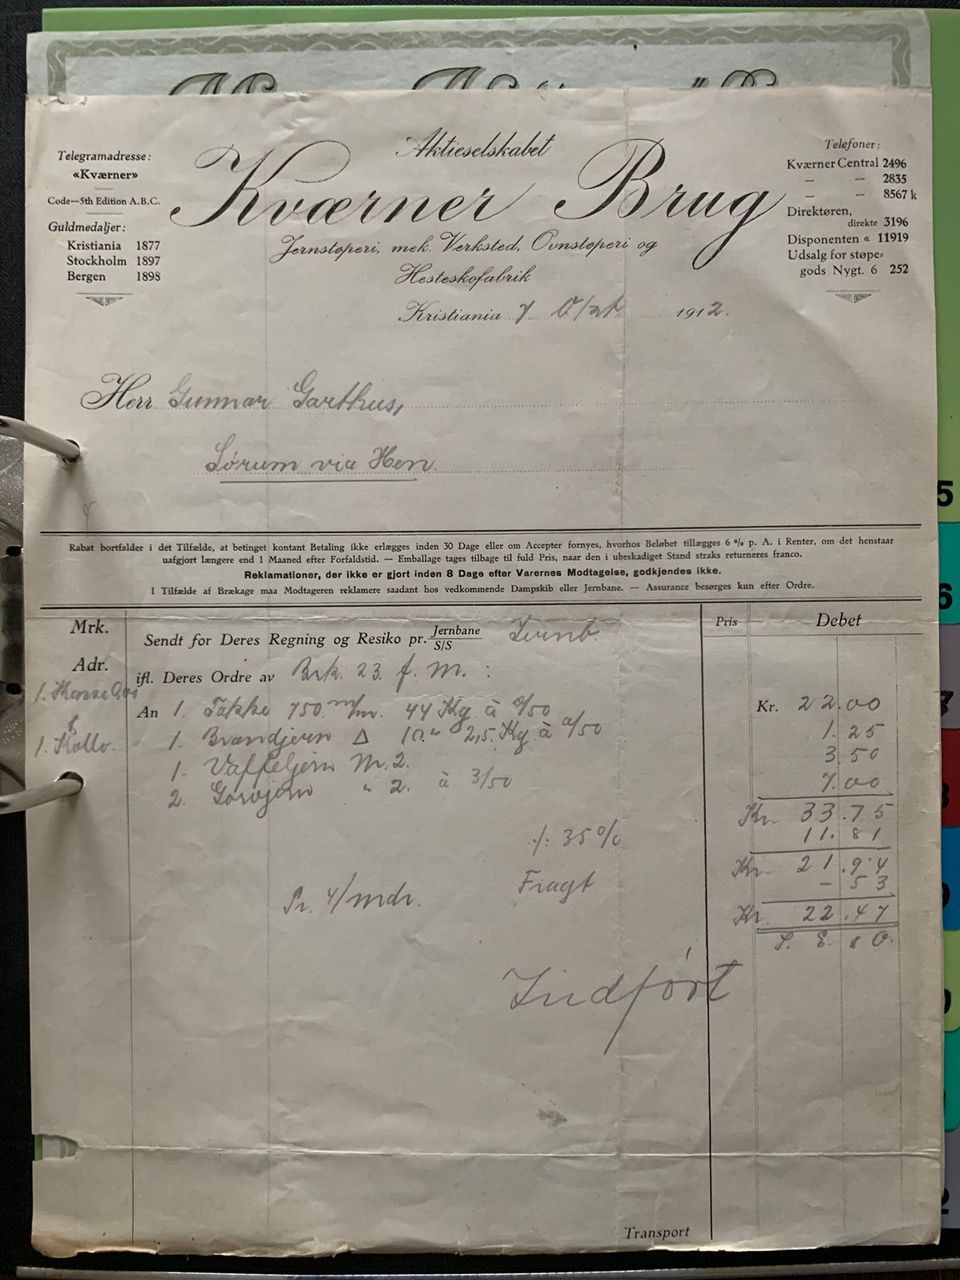 Aktieselskabet
Kværner Brug
Jernstøperi, mek. Verksted, Ovnstøperi og
Hesteskofabrik
Telegramadresse:
«Kværner»
Code—5th Edition A.B.C.
Guldmedaljer:
Kristiania 1877
Stockholm 1897
Bergen 1898
Telefoner:
Kværner Central 2496
— — 2835
— — 8567 k
Direktøren,
direkte 3196
Disponenten « 11919
Udsalg for støpe-
gods Nygt. 6 252
Kristiania 7 Oktr. 1912.
Herr Gunnar Garthus,
Sørum via Hen.
Rabat bortfalder i det Tilfælde, at betinget kontant Betaling ikke erlægges inden 30 Dage eller om Accepter fornyes, hvorhos Beløbet tillægges 6 % p. A. i Renter, om det henstaar
uafgjort længere end 1 Maaned efter Forfaldstid. — Emballage tages tilbage til fuld Pris, naar den i ubeskadiget Stand straks returneres franco.
Reklamationer, der ikke er gjort inden 8 Dage efter Varernes Modtagelse, godkjendes ikke.
I Tilfælde af Brækage maa Modtageren reklamere saadant hos vedkommende Dampskib eller Jernbane. — Assurance besørges kun efter Ordre.
Mrk. Pris Debet
Sendt for Deres Regning og Resiko pr. Jernbane S/S Jernb.
Adr.
ifl. Deres Ordre av Brk. 23. f. M. :
1. Kasse
An 1. Takke 750 m/m. 44 Kg à /50 Kr. 22.00
1. Kollo.
1. Brandjern Δ 10." 2,5. Kg à /50 1.25
1. Vaffeljern Nr. 2. 3.50
2. Gorojern " 2. à 3/50 7.00
Kr. 33.75
./. 35% 11.81
Kr. 21.94
Fragt - 53
Pr. 4/mdr.
Kr. 22.47
S. E. & O.
Indført
Transport